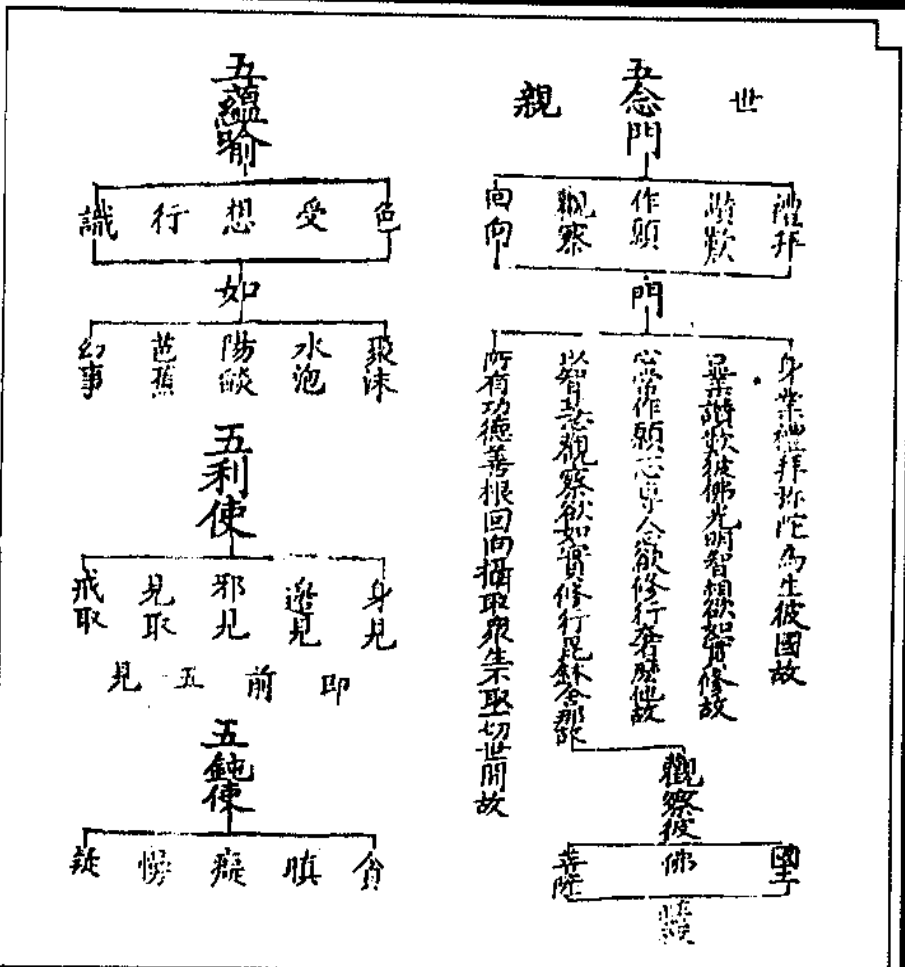 世親
五念門
禮拜
讃歎
作願
觀察
回向
門
身業禮拜弥陀為生彼國故
口業讃歎彼佛光明智相欲如實修故
常作願志專念欲修行奢摩他故
以智慧觀察欲如實修行毘鉢舍那故
所有功德善根回向攝取衆生不取一切世間故
觀察彼
國土
佛
菩薩
莊嚴
五蘊喻
色
受
想
行
識
如
聚沫
水泡
陽燄
芭蕉
幻事
五利使
身見
邊見
邪見
見取
戒取
即前五見
五鈍使
貪
瞋
癡
慢
疑